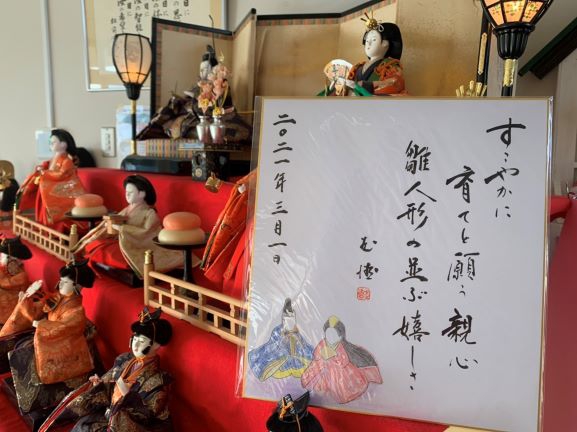 すこやかに
育てと願う親心
雛人形の並ぶ嬉しさ
二〇二一年三月一日